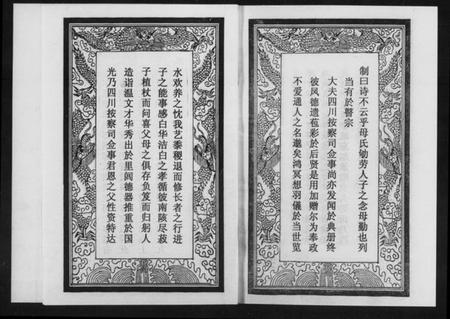 制曰诗不云乎母氏劬劳人子之念母勤也列
当有於瞽宗
大夫四川按察司佥事尚亦发闻於典册终
彼风德遗苞彩於后贤是用加赠尔为奉政
不爱通人之名邈矣鸿冥想羽儀於当世览
水欢养之忱我艺黍稷退而修长者之行进
子之能事感白华洁白之孝循彼南陔尽菽
子植杖而问喜父母之俱存负笈而归躬人
造诣温文才华秀出於里闾德器推重於国
光乃四川按察司佥事君恩之父性资特达